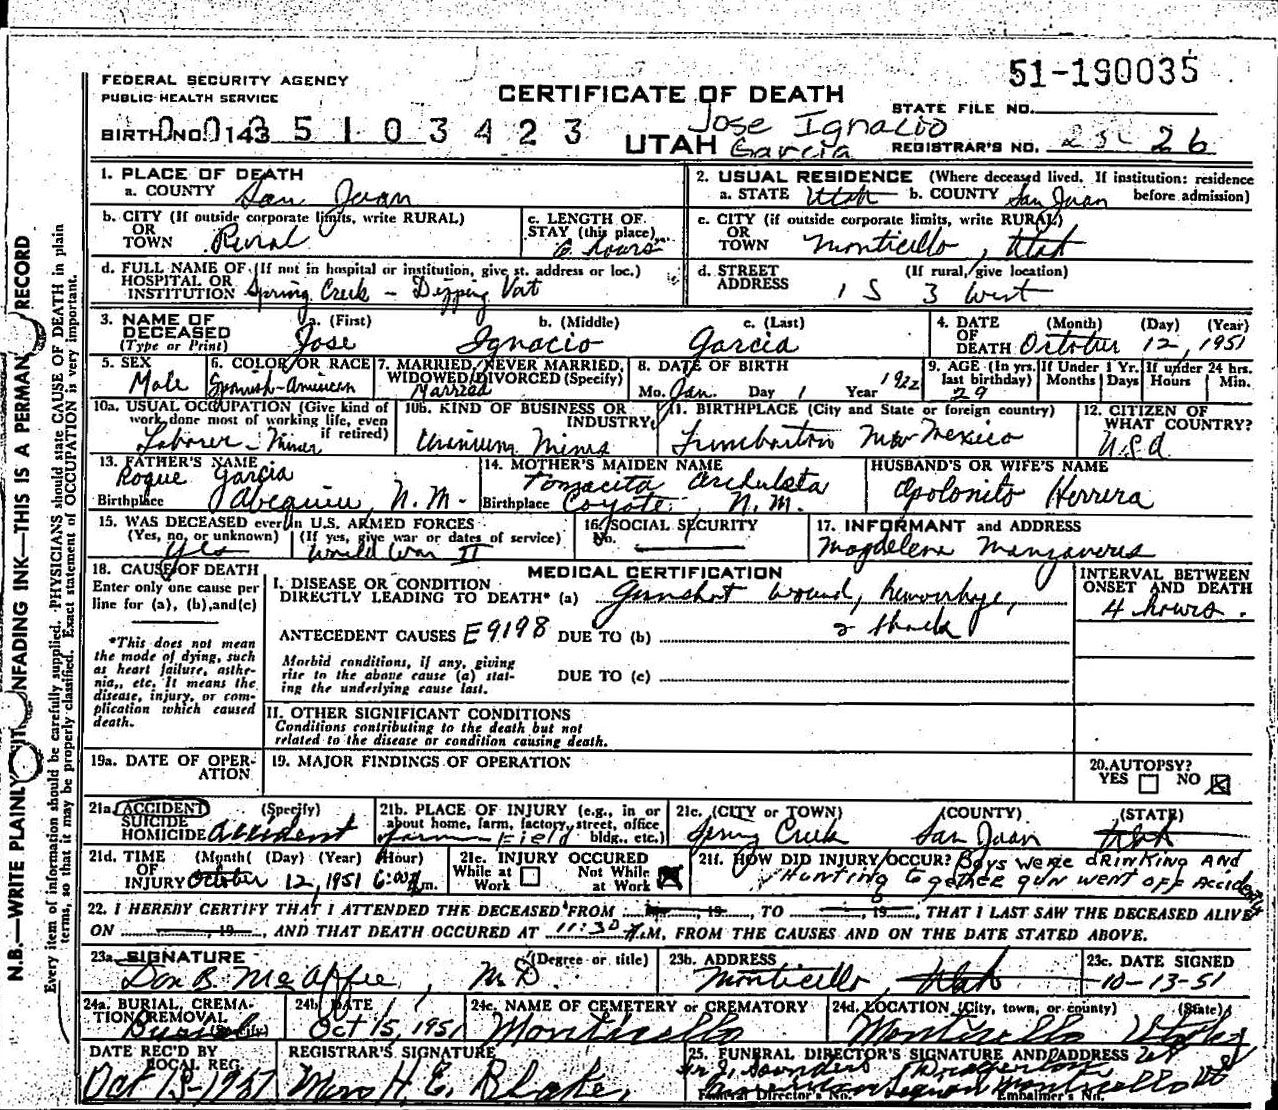 51-190035
FEDERAL SECURITY AGENCY
PUBLIC HEALTH SERVICE
CERTIFICATE OF DEATH
STATE FILE NO.
BIRTH NO. 0143 5 1 0 3 4 2 3
UTAH
Jose Ignacio
Garcia
REGISTRAR'S NO. 26
1. PLACE OF DEATH
a. COUNTY San Juan
2. USUAL RESIDENCE (Where deceased lived. If institution: residence before admission)
a. STATE Utah b. COUNTY San Juan
b. CITY (If outside corporate limits, write RURAL)
OR TOWN Rural
c. LENGTH OF STAY (this place) 6 hours
c. CITY (if outside corporate limits, write RURAL)
OR TOWN Monticello, Utah
d. FULL NAME OF (If not in hospital or institution, give st. address or loc.)
HOSPITAL OR INSTITUTION Spring Creek - Dipping Vat
d. STREET ADDRESS (If rural, give location)
1 S 3 West
3. NAME OF DECEASED (Type or Print)
a. (First) b. (Middle) c. (Last)
Jose Ignacio Garcia
4. DATE OF DEATH (Month) (Day) (Year)
October 12, 1951
5. SEX
Male
6. COLOR OR RACE
Spanish-American
7. MARRIED, NEVER MARRIED, WIDOWED, DIVORCED (Specify)
Married
8. DATE OF BIRTH
Mo. Jan. Day 1 Year 1922
9. AGE (In yrs. last birthday) 29
If Under 1 Yr. Months Days
If under 24 hrs. Hours Min.
10a. USUAL OCCUPATION (Give kind of work done most of working life, even if retired)
Laborer - Miner
10b. KIND OF BUSINESS OR INDUSTRY
Uranium Mines
11. BIRTHPLACE (City and State or foreign country)
New Mexico
12. CITIZEN OF WHAT COUNTRY?
U.S.A.
13. FATHER'S NAME
Roque Garcia
Birthplace Abequiu, N.M.
14. MOTHER'S MAIDEN NAME
Tomacita Archuleta
Birthplace Coyote, N.M.
HUSBAND'S OR WIFE'S NAME
Apolonito Herrera
15. WAS DECEASED ever in U.S. ARMED FORCES
(Yes, no, or unknown) (If yes, give war or dates of service)
Yes World War II
16. SOCIAL SECURITY No.
17. INFORMANT and ADDRESS
Magdelena Manzanares
18. CAUSE OF DEATH
Enter only one cause per line for (a), (b), and (c)
*This does not mean the mode of dying, such as heart failure, asthenia, etc. It means the disease, injury, or complication which caused death.
MEDICAL CERTIFICATION
I. DISEASE OR CONDITION DIRECTLY LEADING TO DEATH* (a) Gunshot wound, hemorrhge, & shock
INTERVAL BETWEEN ONSET AND DEATH
4 hours.
ANTECEDENT CAUSES E9198 DUE TO (b)
Morbid conditions, if any, giving rise to the above cause (a) stating the underlying cause last.
DUE TO (c)
II. OTHER SIGNIFICANT CONDITIONS
Conditions contributing to the death but not related to the disease or condition causing death.
19a. DATE OF OPERATION
19. MAJOR FINDINGS OF OPERATION
20. AUTOPSY?
YES NO
21a. ACCIDENT SUICIDE HOMICIDE (Specify)
accident
21b. PLACE OF INJURY (e.g., in or about home, farm, factory, street, office bldg., etc.)
farm - Field
21c. (CITY or TOWN) (COUNTY) (STATE)
Creek San Juan Utah
21d. TIME OF INJURY (Month) (Day) (Year) (Hour)
October 12, 1951 6:00 m.
21e. INJURY OCCURED
While at Work Not While at Work
21f. HOW DID INJURY OCCUR? Boys were drinking and hunting together gun went off accidently
22. I HEREBY CERTIFY THAT I ATTENDED THE DECEASED FROM , 19 , TO , 19 , THAT I LAST SAW THE DECEASED ALIVE
ON , 19 , AND THAT DEATH OCCURED AT 11:30 .M, FROM THE CAUSES AND ON THE DATE STATED ABOVE.
23a. SIGNATURE (Degree or title)
Don B. McAffee, M.D.
23b. ADDRESS
Monticello, Utah
23c. DATE SIGNED
10-13-51
24a. BURIAL, CREMATION, REMOVAL (Specify)
Burial
24b. DATE
Oct 15, 1951
24c. NAME OF CEMETERY or CREMATORY
Monticello
24d. LOCATION (City, town, or county) (State)
Monticello Utah
DATE REC'D BY LOCAL REG.
REGISTRAR'S SIGNATURE
Mrs H. E. Blake,
25. FUNERAL DIRECTOR'S SIGNATURE AND ADDRESS
American Legion Monticello
Funeral Director's No. Embalmer's No.
N.B.—WRITE PLAINLY UNFADING INK—THIS IS A PERMAN RECORD
Every item of information should be carefully supplied. PHYSICIANS should state CAUSE OF DEATH in plain
terms, so that it may be properly classified. Exact statement of OCCUPATION is very important.